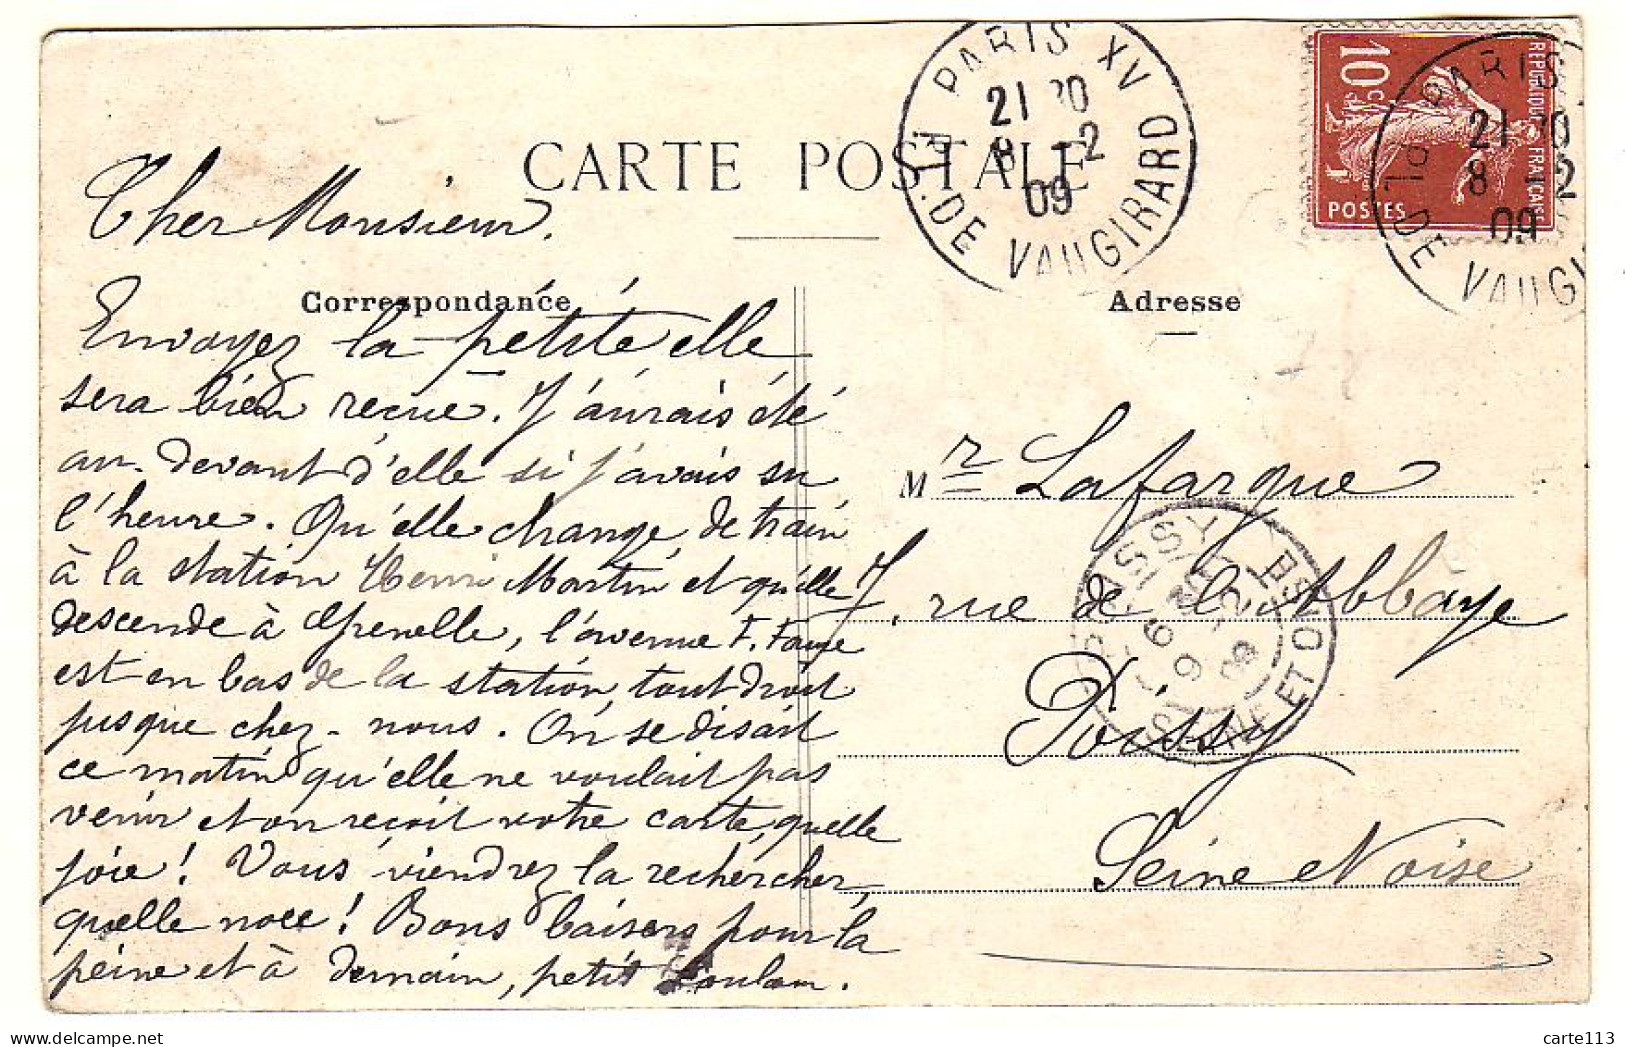 CARTE POSTALE
Correspondance
Adresse
PARIS XV
21 30
8 -2
09
Pl. DE VAUGIRARD
10 c
REPUBLIQUE FRANÇAISE
POSTES
PARIS
21 30
8 -2
09
Pl. DE VAUGI
Cher Monsieur.
Envoyez la petite elle
sera bien reçue. J'aurais été
au-devant d'elle si j'avais su
l'heure. Qu'elle change de train
à la station Henri Martin et qu'elle
descende à Grenelle, l'avenue F. Faure
est en bas de la station, tout droit
jusque chez-nous. On se disait
ce matin qu'elle ne voulait pas
venir et on reçoit votre carte, quelle
joie ! Vous viendrez la rechercher,
quelle noce ! Bons baisers pour la
peine et à demain, petit Loulou.
Mr Lafargue
7, rue de l'Abbaye
Poissy
Seine et Oise
POISSY
SEINE ET OISE
9
09
carte113